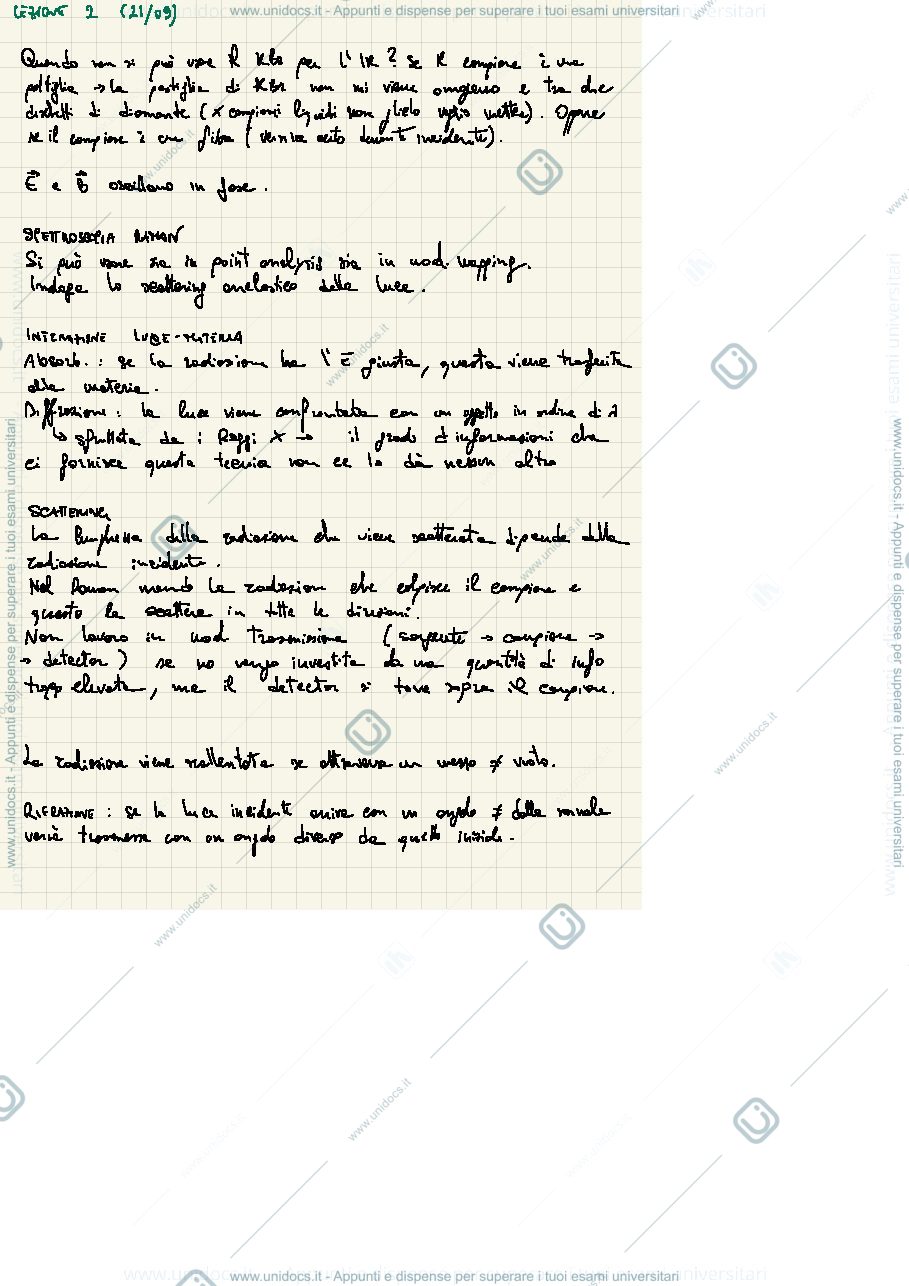 LEZIONE 2 (21/09)
www.unidocs.it - Appunti e dispense per superare i tuoi esami universitari
Quando non si può usare il KBr per l'IR? Se il campione è una
poltiglia → la pastiglia di KBr non mi viene omogeneo e tra due
dischetti di diamante (x campioni liquidi non glielo voglio mettere). Oppure
se il campione è una fibra (vernice auto durante incidente).
E e B oscillano in fase.
SPETTROSCOPIA RAMAN
Si può usare sia in point analysis sia in mod. mapping.
Indaga lo scattering anelastico della luce.
INTERAZIONE LUCE-MATERIA
Absorb.: se la radiazione ha l'E giusta, questa viene trasferita
alla materia.
Diffrazione: la luce viene confrontata con un oggetto in ordine di λ
↳ sfruttata da i Raggi X → il grado d'informazioni che
ci fornisce questa tecnica non ce lo dà nessun altro
SCATTERING
La lunghezza della radiazione che viene scatterata dipende dalla
radiazione incidente.
Nel Raman mando la radiazione che colpisce il campione e
questo la scattera in tutte le direzioni.
Non lavoro in mod trasmissione (sorgente → campione →
→ detector) se no vengo investita da una quantità di info
tropp elevata, ma il detector si trova sopra il campione.
La radiazione viene rallentata se attraversa un mezzo ≠ vuoto.
RIFRAZIONE: se la luce incidente arriva con un angolo ≠ dalla normale
verrà trasmessa con un angolo diverso da quello iniziale.
www.unidocs.it - Appunti e dispense per superare i tuoi esami universitari